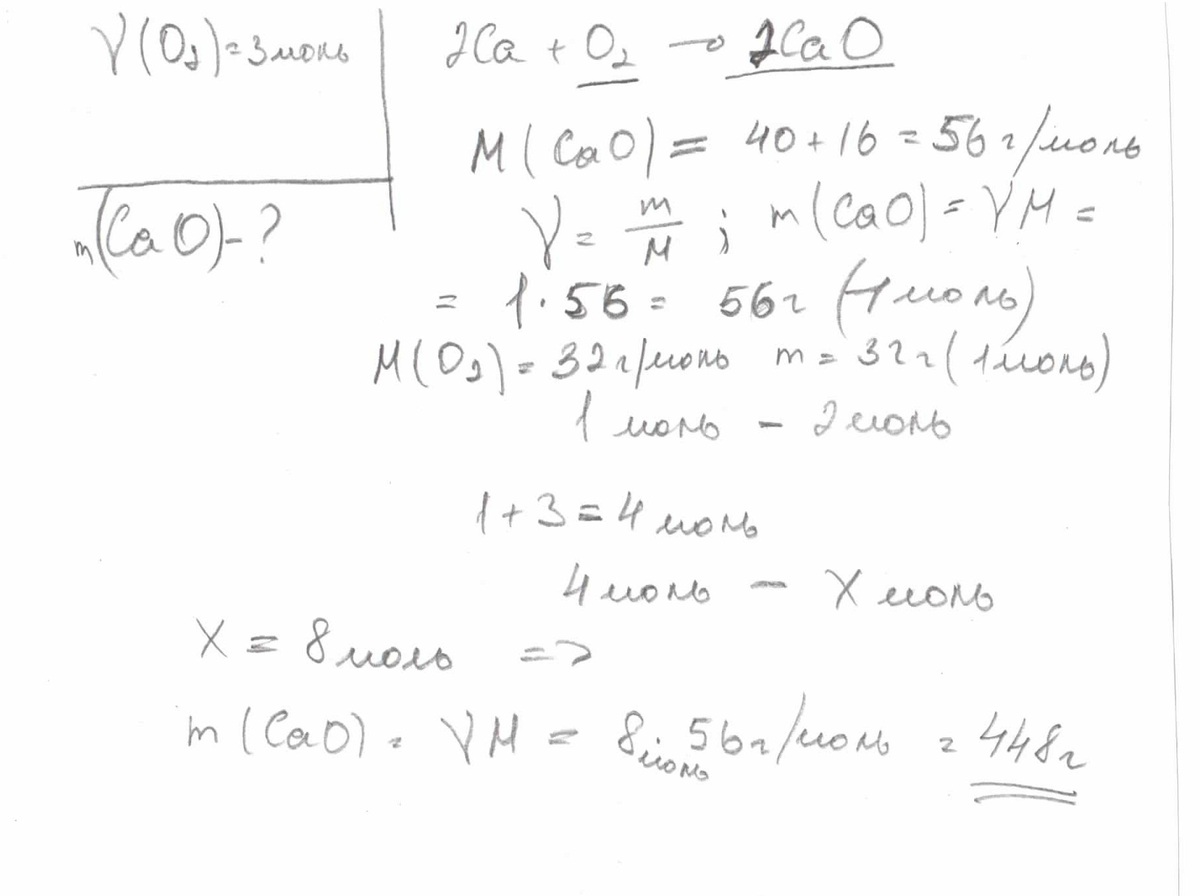 γ(O₂)=3моль
m(CaO)-?
2Ca + O₂ → 2CaO
M(CaO) = 40+16 = 56г/моль
γ = m/M ; m(CaO) = γM =
= 1·56 = 56г (1моль)
M(O₂) = 32г/моль m = 32г (1моль)
1 моль – 2моль
1+3=4моль
4моль – X моль
X = 8моль =>
m(CaO) = γM = 8моль·56г/моль = 448г